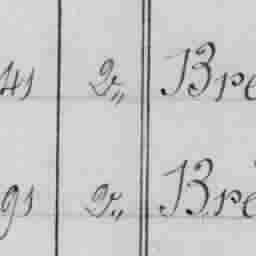 41 2„ Bre
91 2„ Bre